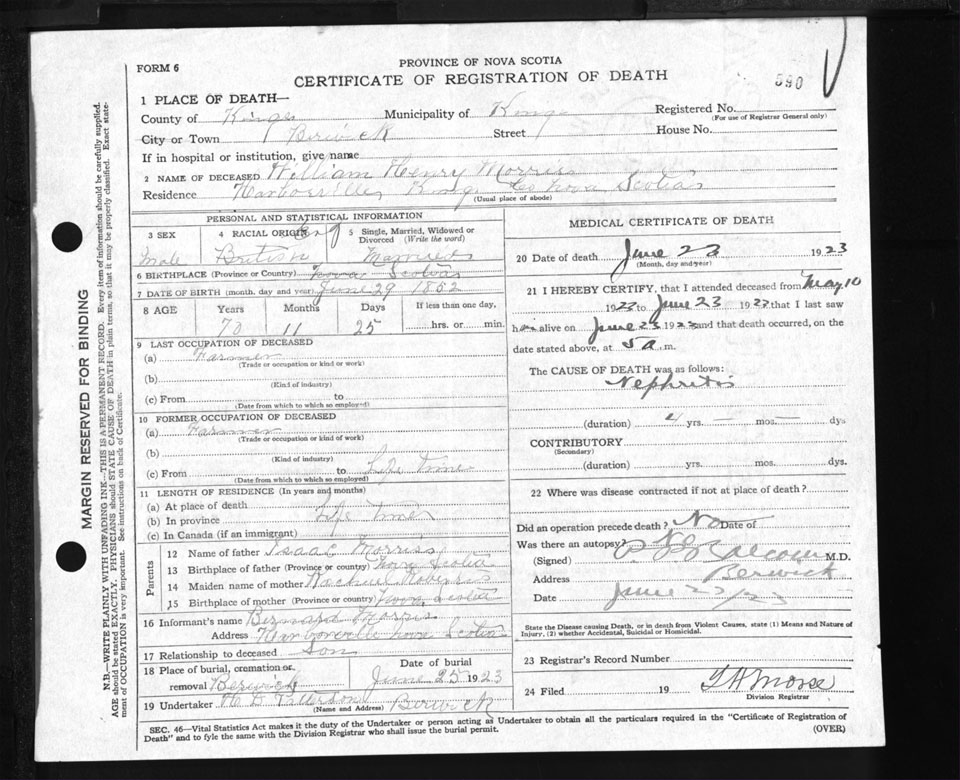 FORM 6
PROVINCE OF NOVA SCOTIA
CERTIFICATE OF REGISTRATION OF DEATH
590
1 PLACE OF DEATH—
County of Kings Municipality of Kings Registered No.
(For use of Registrar General only)
City or Town Berwick Street House No.
If in hospital or institution, give name
2 NAME OF DECEASED William Henry Morris
Residence Harborville, Kings Co Nova Scotia
(Usual place of abode)
PERSONAL AND STATISTICAL INFORMATION
3 SEX 4 RACIAL ORIGIN 5 Single, Married, Widowed or Divorced (Write the word)
Male British Married
6 BIRTHPLACE (Province or Country) Nova Scotia
7 DATE OF BIRTH (month, day and year) June 29 1852
8 AGE Years Months Days If less than one day,
70 11 25 hrs. or min.
9 LAST OCCUPATION OF DECEASED
(a) Farmer
(Trade or occupation or kind or work)
(b)
(Kind of industry)
(c) From to
(Date from which to which so employed)
10 FORMER OCCUPATION OF DECEASED
(a) Farmer
(Trade or occupation or kind of work)
(b)
(Kind of industry)
(c) From to Life Time
(Date from which to which so employed)
11 LENGTH OF RESIDENCE (In years and months)
(a) At place of death
(b) In province Life Time
(c) In Canada (if an immigrant)
Parents
12 Name of father Isaac Morris
13 Birthplace of father (Province or country) Nova Scotia
14 Maiden name of mother
15 Birthplace of mother (Province or country) Nova Scotia
16 Informant's name Bernard Morris
Address Harborville Nova Scotia
17 Relationship to deceased Son
18 Place of burial, cremation or removal Berwick Date of burial June 25 1923
19 Undertaker Berwick
(Name and Address)
MEDICAL CERTIFICATE OF DEATH
20 Date of death June 23 1923
(Month, day and year)
21 I HEREBY CERTIFY, that I attended deceased from May 10
1923 to June 23 1923 that I last saw
him alive on June 23 1923 and that death occurred, on
date stated above, at 5 a.m.
The CAUSE OF DEATH was as follows:
Nephritis
(duration) 4 yrs. — mos. — dys
CONTRIBUTORY
(Secondary)
(duration) yrs. mos. dys.
22 Where was disease contracted if not at place of death?
Did an operation precede death? No Date of
Was there an autopsy? No
(Signed) M.D.
Address Berwick
Date June 23/23
State the Disease causing Death, or in death from Violent Causes, state (1) Means and Nature of
Injury, (2) whether Accidental, Suicidal or Homicidal.
23 Registrar's Record Number
24 Filed 19
Division Registrar
SEC. 46—Vital Statistics Act makes it the duty of the Undertaker or person acting as Undertaker to obtain all the particulars required in the "Certificate of Registration of
Death" and to fyle the same with the Division Registrar who shall issue the burial permit. (OVER)
MARGIN RESERVED FOR BINDING
N.B.—WRITE PLAINLY WITH UNFADING INK—THIS IS A PERMANENT RECORD. Every item of information should be carefully supplied.
AGE should be stated EXACTLY. PHYSICIANS should STATE CAUSE OF DEATH in plain terms, so that it may be properly classified. Exact state-
ment of OCCUPATION is very important. See instructions on back of Certificate.